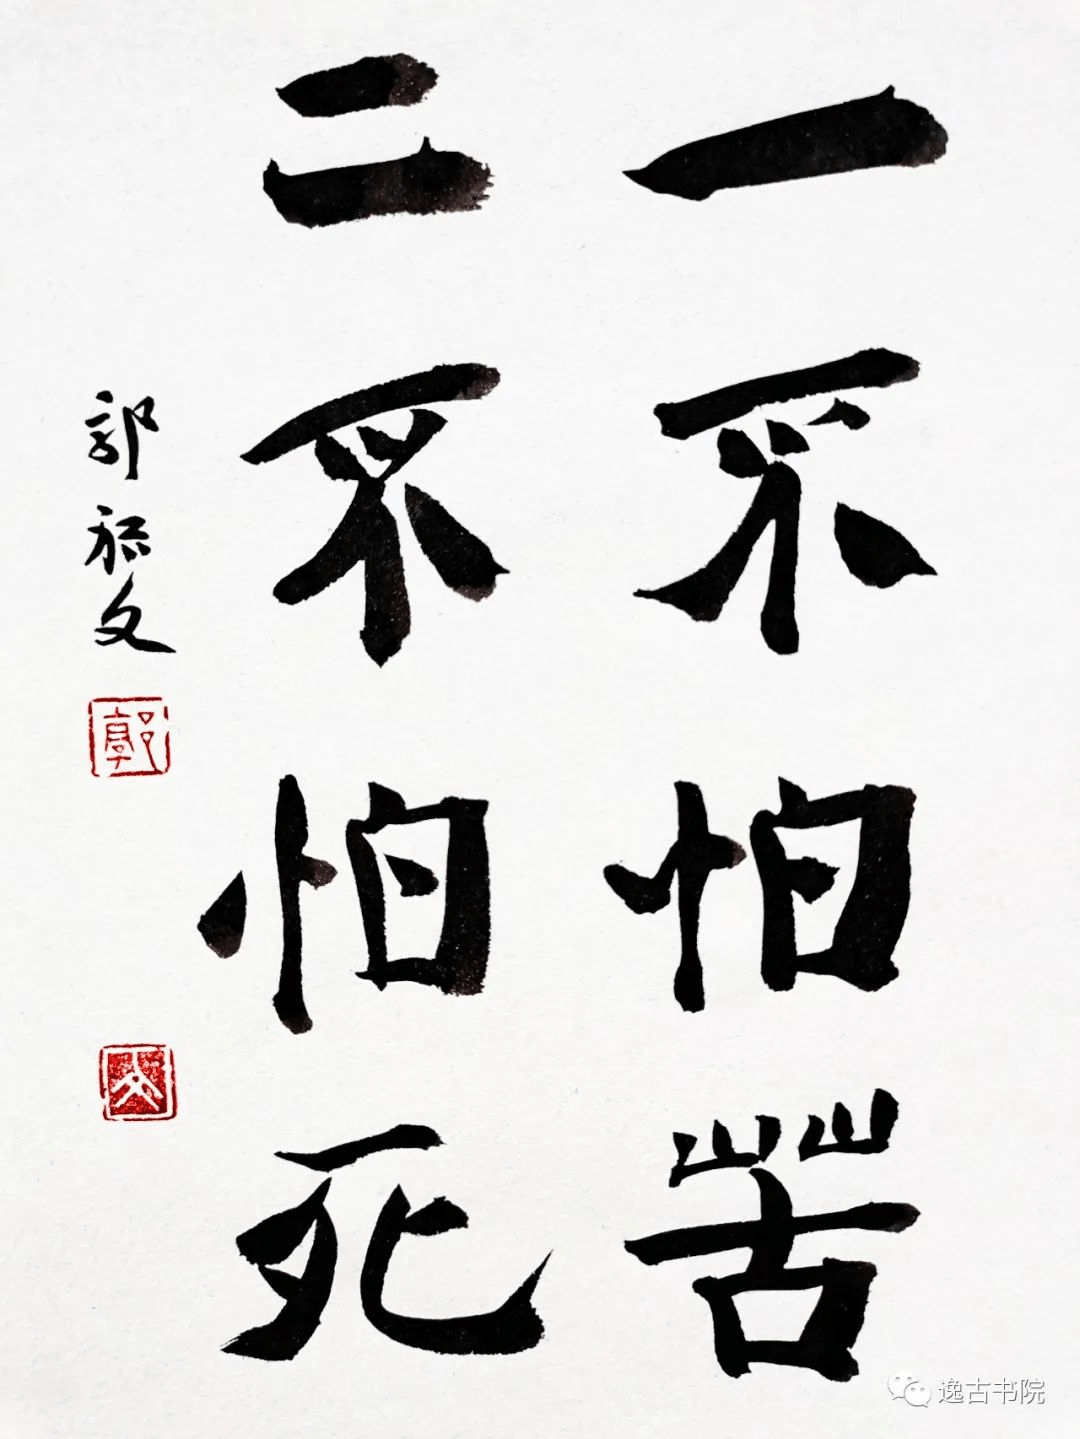 一不怕苦
二不怕死
郭文
郭
文
逸古书院